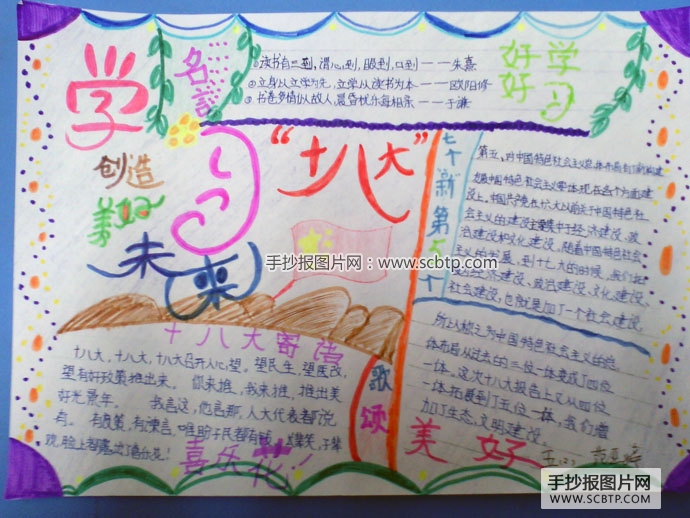 学习
创造
美好
未来
名言
①读书有三到,谓心到,眼到,口到——朱熹
②立身以立学为先,立学以读书为本——欧阳修
③书卷多情似故人,晨昏忧乐每相亲——于谦
好好学习
“十八大”
七个新第五个
第五,对中国特色社会主义总体布局有了新构建
建设中国特色社会主义具体现在各个方面建
设上。中国共产党在十六大以前关于中国特色社
会主义的建设主要集中于经济建设、政
治建设和文化建设。随着中国特色社会
主义的发展,到十七大的时候,我们把
经济建设、政治建设、文化建设、
社会建设,也就是加了一个社会建设,
所以称之为中国特色社会主义的总
体布局从过去的三位一体变成了四位
一体。这次十八大报告上又从四位
一体拓展到了五位一体,我们增
加了生态文明建设。
手抄报图片网:www.scbtp.com
十八大寄语
十八大,十八大,十八大召开人心望。望民生,望医改,
望有好政策推出来。你来推,我来推,推出美
好光景年。我言这,他言那,人大代表都说
有。有政策,有宗言,唯盼子民都有钱。
晓,脸上都露出了喜乐花!
喜乐花!
歌颂
美好
手抄报图片网
WWW.SCBTP.COM